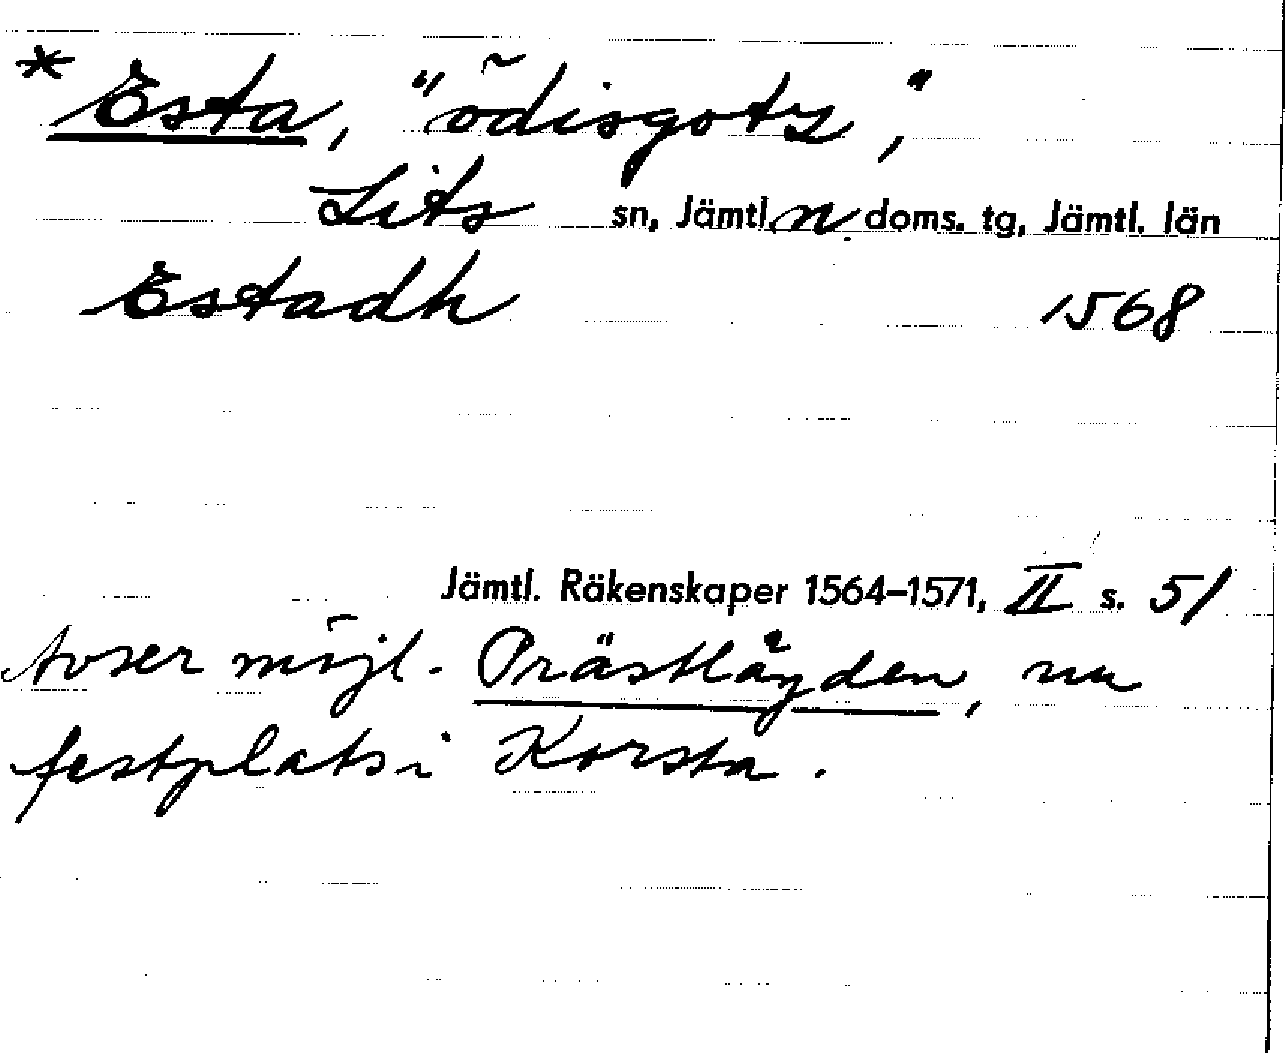 * Esta, "ödisgotz",
Lits sn, Jämtl. n doms. tg, Jämtl. län
Estadh 1568
Jämtl. Räkenskaper 1564–1571, II s. 51
Avser möjl. Prästlägden, nu
festplats i Korsta.